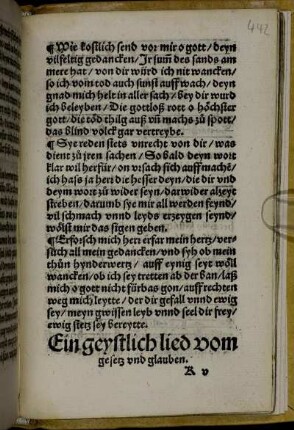 442
¶ Wie kostlich send vor mir o gott / deyn
vilfeltig gedancken / Jr sum̃ des sands am
mere hat / von dir würd ich nit wancken /
so ich vom tod auch sunst auff wach / deyn
gnad mich helt in aller sach / bey dir wurd
ich beleyben / Die gottloß rott o höchster
gott / die töd thilg auß vñ machs zu spott /
das blind volck gar vertreybe.
¶ Sye reden stets vnrecht von dir / was
dient zu jren sachen / So bald deyn wort
klar wil herfür / on vrsach sich auff mache /
ich hass ja herr die hesser deyn / die dir vnd
deym wort zu wider seyn / darwider alzeyt
streben / darumb sye mir all werden feynd /
vil schmach vnnd leyds erzeygen seynd /
wölst mir das sigen geben.
¶ Erforsch mich herr erfar mein hertz / ver-
stich all mein gedancken / vnd syh ob mein
thün hynderwertz / auff eynig seyt wöll
wancken / ob ich sey tretten ab der ban / laß
mich o gott nicht fürbas gon / auff rechten
weg mich leytte / der dir gefall vnnd ewig
sey / meyn gwissen leyb vnnd seel dir frey /
ewig stetz sey bereytte.
Ein geystlich lied vom
gesetz vnd glauben.
K v